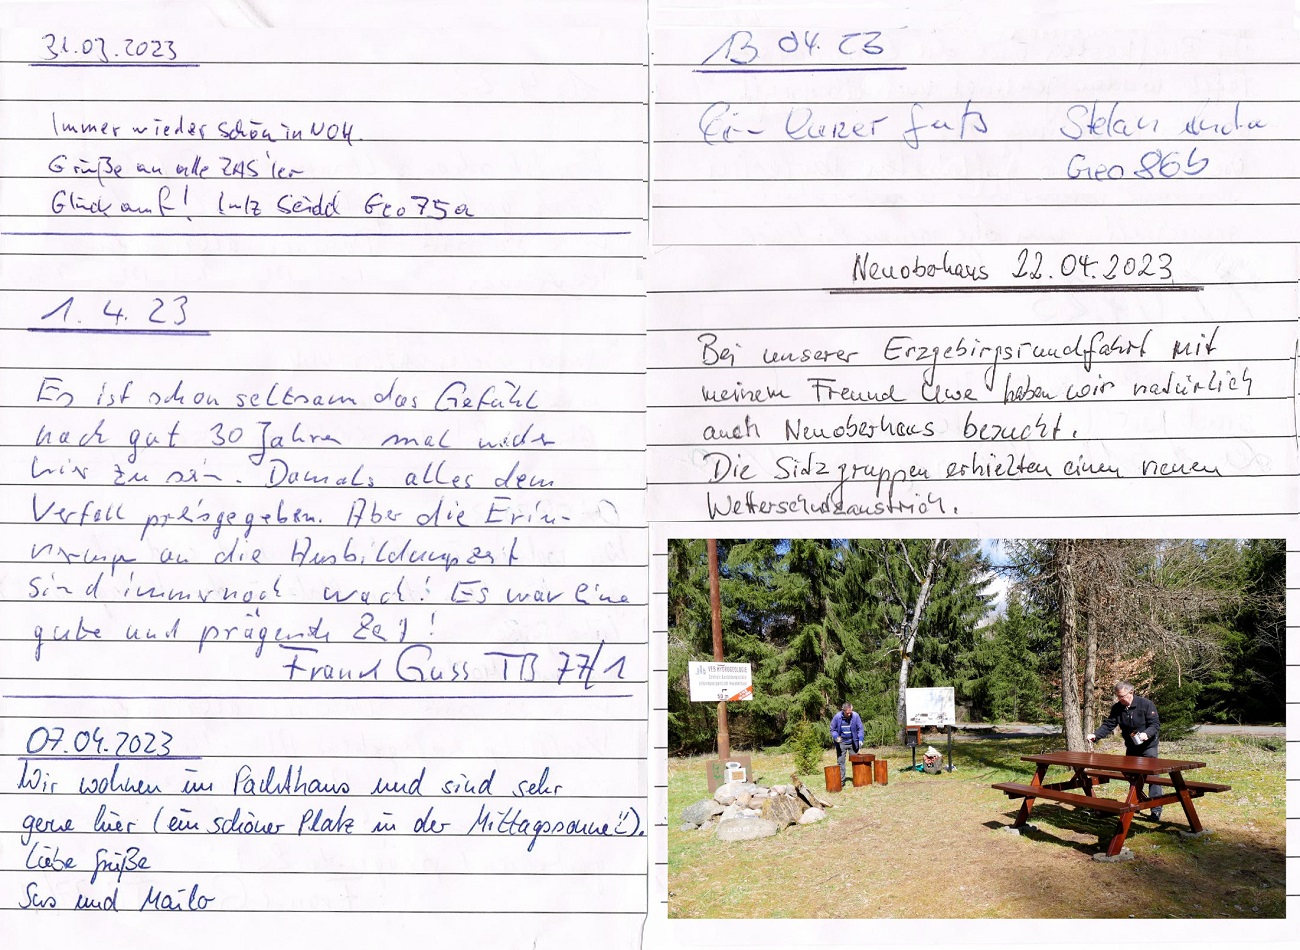 31.03.2023
Immer wieder schön in NOH.
Grüße an alle ZAS'ler
Glück auf! Lutz Seidel Geo 75a
1. 4. 23
Es ist schon seltsam das Gefühl
nach gut 30 Jahren mal wieder
hier zu sein. Damals alles dem
Verfall preisgegeben. Aber die Erin-
nerung an die Ausbildungszeit
sind immer noch wach! Es war eine
gute und prägende Zeit!
Frank Guss TB 77/1
07.04.2023
Wir wohnen im Pachthaus und sind sehr
gerne hier (ein schöner Platz in der Mittagssonne!).
Liebe Grüße
Sus und Mailo
13. 04. 23
Ein kurzer Gruß Stefan
Geo 86b
Neuoberhaus 22.04.2023
Bei unserer Erzgebirgsrundfahrt mit
meinem Freund Uwe haben wir natürlich
auch Neuoberhaus besucht.
Die Sitzgruppen erhielten einen neuen
Wetterschutzanstrich.
VEB HYDROGEOLOGIE
50 m